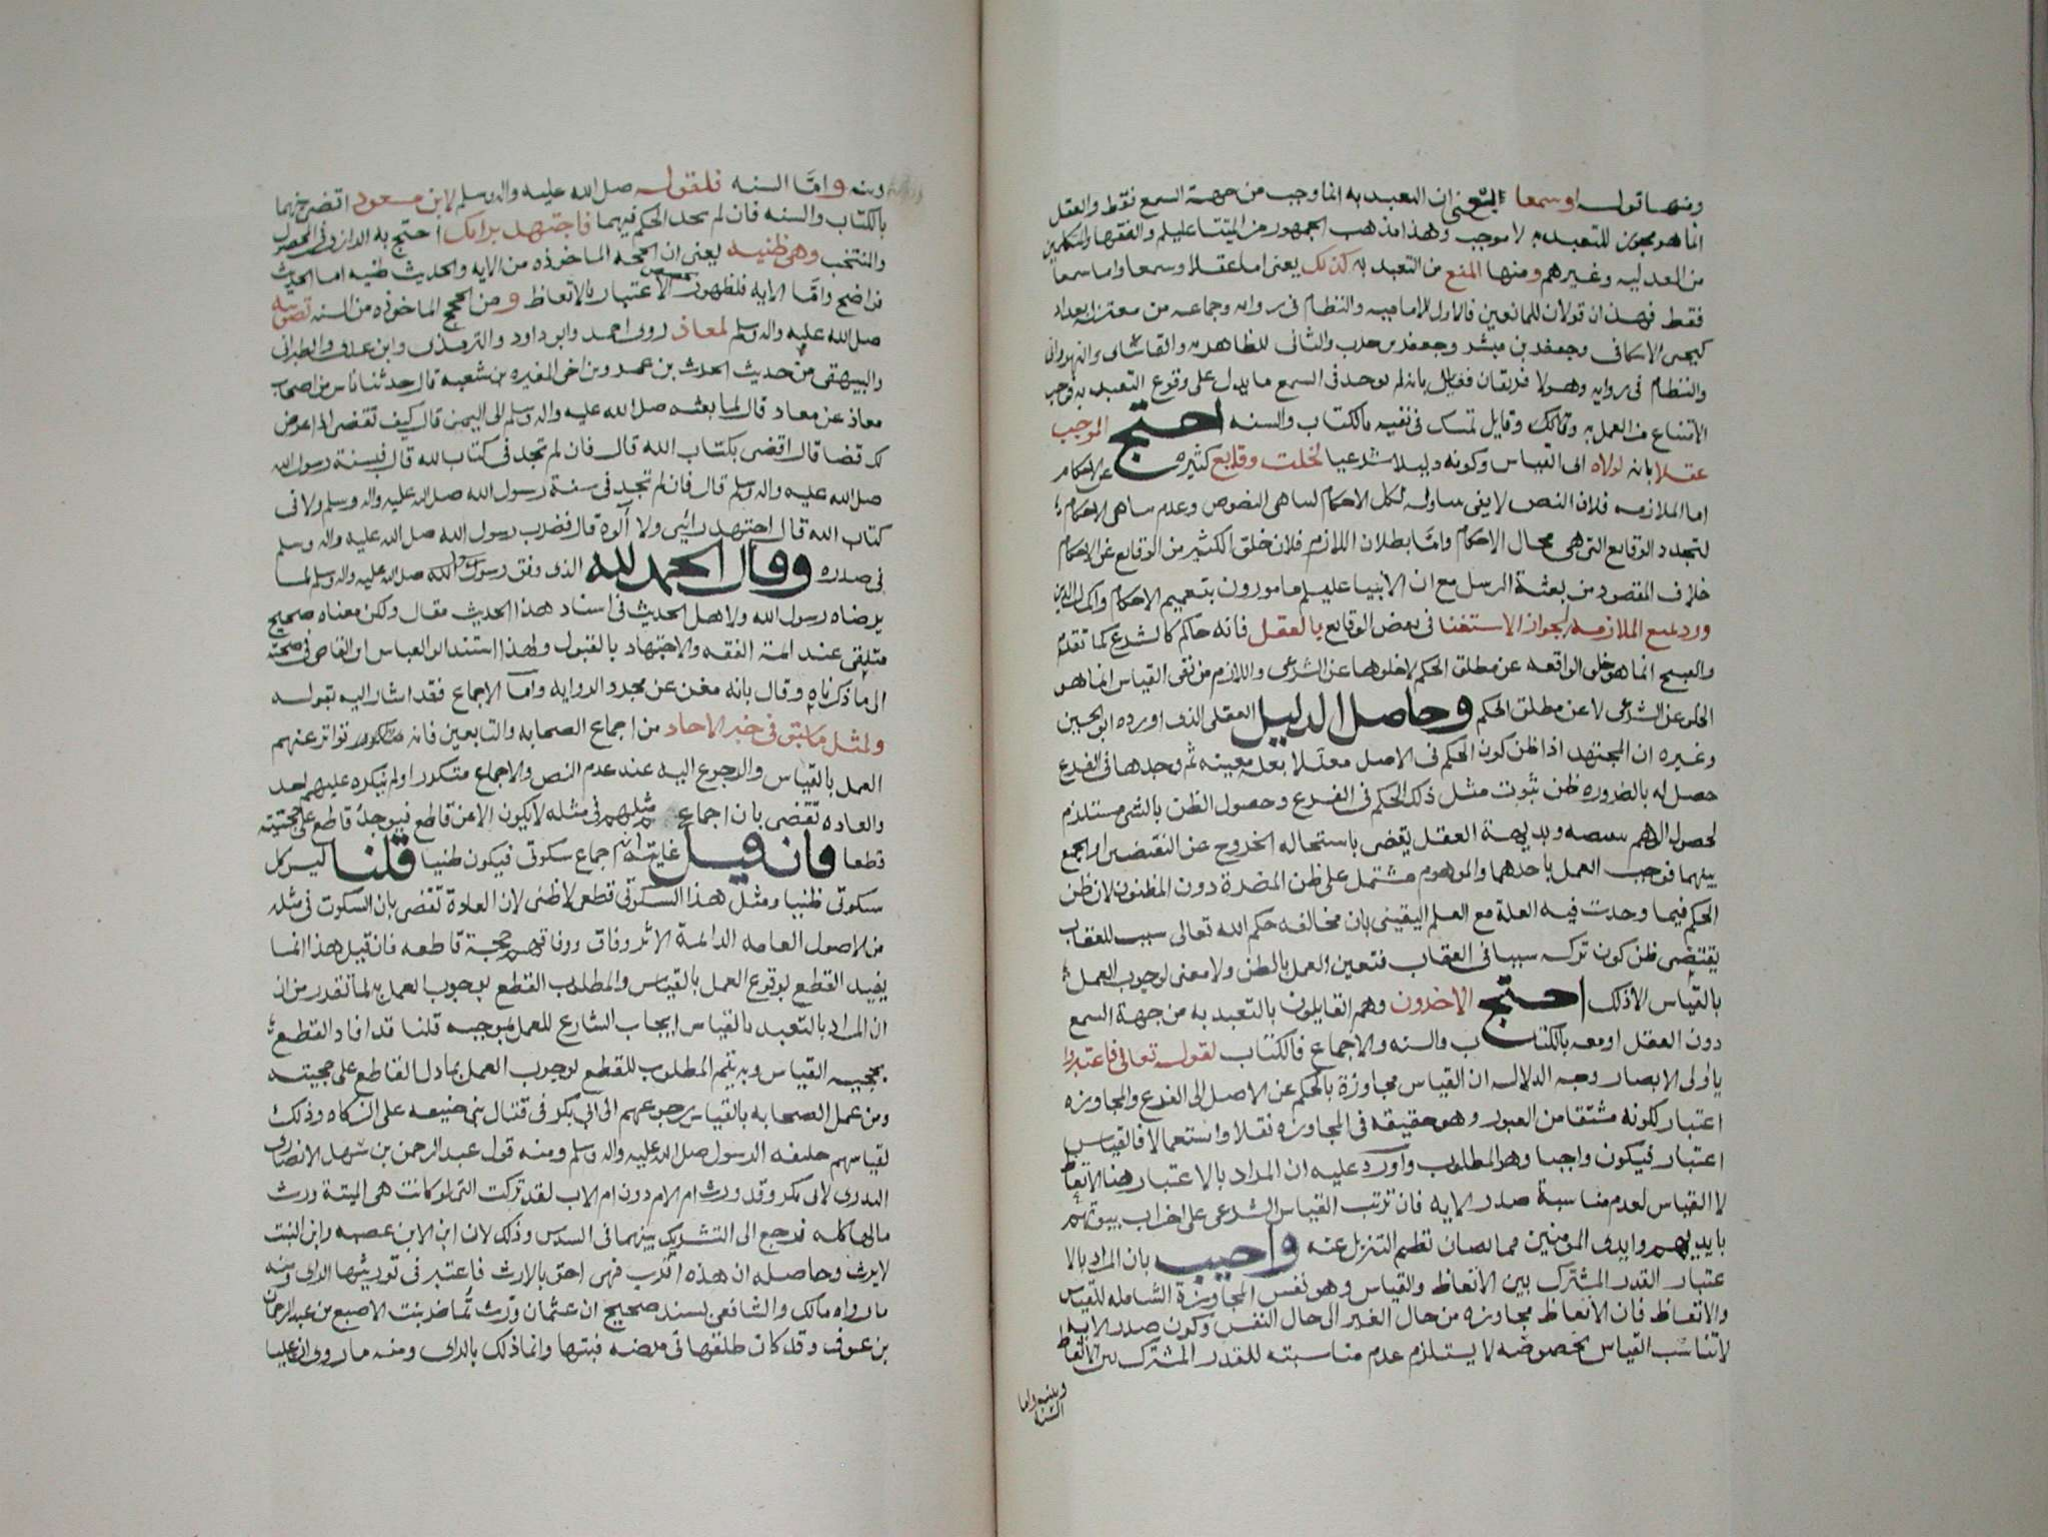 ومنها قوله او سمعا يعني ان التعبد به انما وجب من جهة السمع فقط والعقل
انما هو مجوز للتعبد به لا موجب وهذا مذهب الجمهور من ائمتنا عليلم والفقها والمتكلمين
من العدليه وغيرهم ومنها المنع من التعبد به كذلك يعني اما عقلا وسمعا واما سمعا
فقط فهذان قولان للمانعين فالاول للاماميه والنظام في روايه وجماعه من معتزله بغداد
كيحيى الاسكافي وجعفر بن مبشر وجعفر بن حرب والثاني للظاهريه والقاشاني والنهرواني
والنظام في روايه وهولا فريقان فقايل بانه لم يوجد في السمع ما يدل على وقوع التعبد به فوجب
الامتناع من العمل به وقايل تمسك في نفيه بالكتاب والسنه احتج الموجب
عقلا بانه لولاه اي القياس وكونه دليلا شرعيا لخلت وقايع كثيره عن الاحكام
اما الملازمه فلان النص لا يفي بكل الاحكام لتناهي النصوص وعدم تناهي الاحكام
لتجدد الوقايع التي هي محال الاحكام واما بطلان اللازم فلان خلو الكثير من الوقايع عن الاحكام
خلاف المقصود من بعثة الرسل مع ان الانبيا عليلم مامورون بتعميم الاحكام واكمال الدين
ورد بمنع الملازمه لجواز الاستغنا في بعض الوقايع بالعقل فانه حاكم كالشرع كما تقدم
والقبيح انما هو خلو الواقعه عن مطلق الحكم لا خلوها عن الشرعي واللازم من نفي القياس انما هو
الخلو عن الشرعي لا عن مطلق الحكم وحاصل الدليل العقلي الذي اورده ابو الحسين
وغيره ان المجتهد اذا ظن كون الحكم في الاصل معللا بعله معينه ثم وجدها في الفرع
حصل له بالضروره ظن ثبوت مثل ذلك الحكم في الفرع وحصول الظن بالشي مستلزم
لحصول الوهم بنقيضه وبديهة العقل يقضي باستحاله الخروج عن النقيضين او الجمع
بينهما فوجب العمل باحدهما والموهوم مشتمل على ظن المضرة دون المظنون لان ظن
الحكم فيما وجدت فيه العلة مع العلم اليقيني بان مخالفه حكم الله تعالى سبب للعقاب
يقتضي ظن كون تركه سببا في العقاب فتعين العمل بالظن ولا معنى لوجوب العمل
بالقياس الا ذلك احتج الاخرون وهم القايلون بالتعبد به من جهة السمع
دون العقل او معه بالكتاب والسنه والاجماع فالكتاب لقوله تعالى فاعتبروا
يا اولى الابصار وجه الدلاله ان القياس مجاوزة بالحكم عن الاصل الى الفرع والمجاوزه
اعتبار لكونه مشتقا من العبور وهو حقيقه في المجاوزه نقلا واستعمالا فالقياس
اعتبار فيكون واجبا وهو المطلوب واورد عليه ان المراد بالاعتبار هنا الاتعاظ
لا القياس لعدم مناسبة صدر الايه فان ترتب القياس الشرعي على اخراب بيوتهم
بايديهم وايدى المومنين مما يصان نظم التنزيل عنه واجيب بان المراد بالا
عتبار القدر المشترك بين الاتعاظ والقياس وهو نفس المجاوزة الشامله للقياس
والاتعاظ فان الاتعاظ مجاوزه من حال الغير الى حال النفس وكون صدر الايه
لا تناسب القياس بخصوصه لا يستلزم عدم مناسبته للقدر المشترك بين الاتعاظ
وبينه واما
السنه
وبينه واما السنه فلقوله صلى الله عليه واله وسلم لابن مسعود اقض بهما
بالكتاب والسنه فان لم تجد الحكم فيهما فاجتهد برايك احتج به الرازي في المحصول
والمنتخب وهي ظنيه يعني ان الحجه الماخوذه من الايه والحديث ظنيه اما الحديث
فواضح واما الايه فلظهور الاعتبار بالاتعاظ ومن الحجج الماخوذه من السنه تصويبه
صلى الله عليه واله وسلم لمعاذ روى احمد وابو داود والترمذي وابن عدي والطبراني
والبيهقي من حديث الحرث بن عمرو بن اخي المغيره بن شعبه قال حدثنا ناس من اصحاب
معاذ عن معاذ قال لما بعثه صلى الله عليه واله وسلم الى اليمن قال كيف تقضي اذا عرض
لك قضا قال اقضي بكتاب الله قال فان لم تجد في كتاب الله قال فبسنة رسول الله
صلى الله عليه واله وسلم قال فان لم تجد في سنة رسول الله صلى الله عليه واله وسلم ولا في
كتاب الله قال اجتهد رائي ولا آلوه قال فضرب رسول الله صلى الله عليه واله وسلم
في صدره وقال الحمد لله الذي وفق رسول رسول الله صلى الله عليه واله وسلم لما
يرضاه رسول الله ولاهل الحديث في اسناد هذا الحديث مقال ولكن معناه صحيح
متلقى عند ائمة الفقه والاجتهاد بالقبول ولهذا استند ابو العباس ابن القاص في صحته
الى ما ذكرناه وقال بانه مغن عن مجرد الروايه واما الاجماع فقد اشار اليه بقوله
ولمثل ما سبق في خبر الاحاد من اجماع الصحابه والتابعين فانه تواتر عنهم
العمل بالقياس والرجوع اليه عند عدم النص والاجماع متكررا ولم ينكره عليهم احد
والعاده تقضي بان اجماع مثلهم في مثله لا يكون الا عن قاطع فيوجد قاطع على حجيته
قطعا فان قيل غايته انه اجماع سكوتي فيكون ظنيا قلنا ليس كل
سكوتي ظنيا ومثل هذا السكوتي قطعي لا ظني لان العادة تقضي بان السكوت في مثله
من الاصول العامه الدائمة الاثر وفاق ووفاقهم حجة قاطعه فان قيل هذا انما
يفيد القطع لوقوع العمل بالقياس والمطلوب القطع لوجوب العمل به لما تقدر من ان
ان المراد بالتعبد بالقياس ايجاب الشارع للعمل بموجبه قلنا قد افاد القطع
بحجيه القياس وبه يتم المطلوب للقطع لوجوب العمل بما دل القاطع على حجيته
ومن عمل الصحابه بالقياس رجوعهم الى ابي بكر في قتال بني حنيفه على الزكاه وذلك
لقياسهم خليفه الرسول صلى الله عليه واله وسلم ومنه قول عبد الرحمن بن سهل الانصاري
البدري لابي بكر وقد ورث ام الام دون ام الاب لقد تركت التي لو كانت هي الميتة ورث
مالها كله فرجع الى التشريك بينهما في السدس وذلك لان ابن الابن عصبه وابن البنت
لا يرث وحاصله ان هذه اقرب فهي احق بالارث فاعتبر في توريثها الراي ومنه
ما رواه مالك والشافعي بسند صحيح ان عثمان ورث تماضر بنت الاصبع من عبد الرحمان
بن عوف وقد كان طلقها في مرضه فبتها وانما ذلك بالراي ومنه ما روي ان عليا